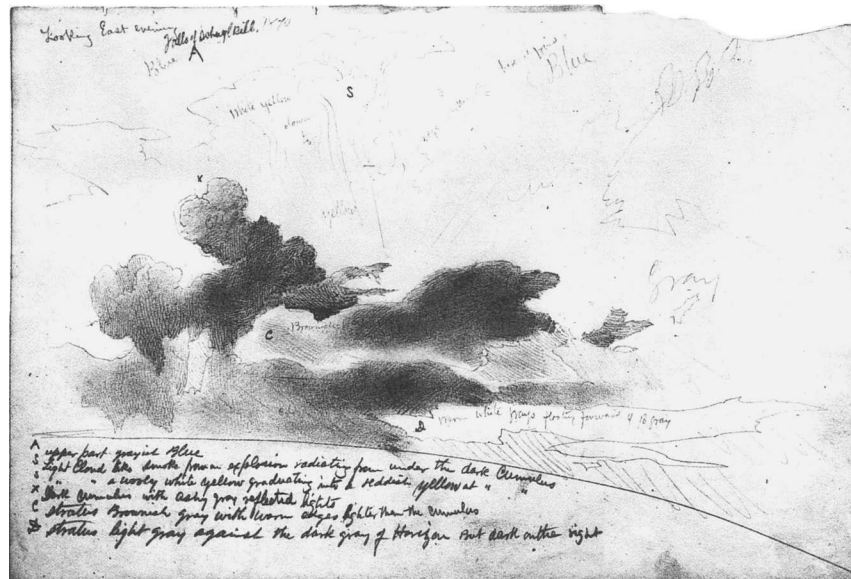 Looking East evening
Hills of Bill.
A
Blue
S
Blue
White yellow
down
x
yellow
Gray
C
Brownish
D
warm white grays floating forward of gray
A upper part grayish Blue
S Light Cloud like smoke from an explosion radiating from under the dark Cumulus
S " " a wooly white yellow graduating into a reddish yellow at " "
X Dark Cumulus with ashy gray reflected lights
C stratus Brownish gray with warm edges lighter than the cumulus
D stratus light gray against the dark gray of Horizon But dark on the right